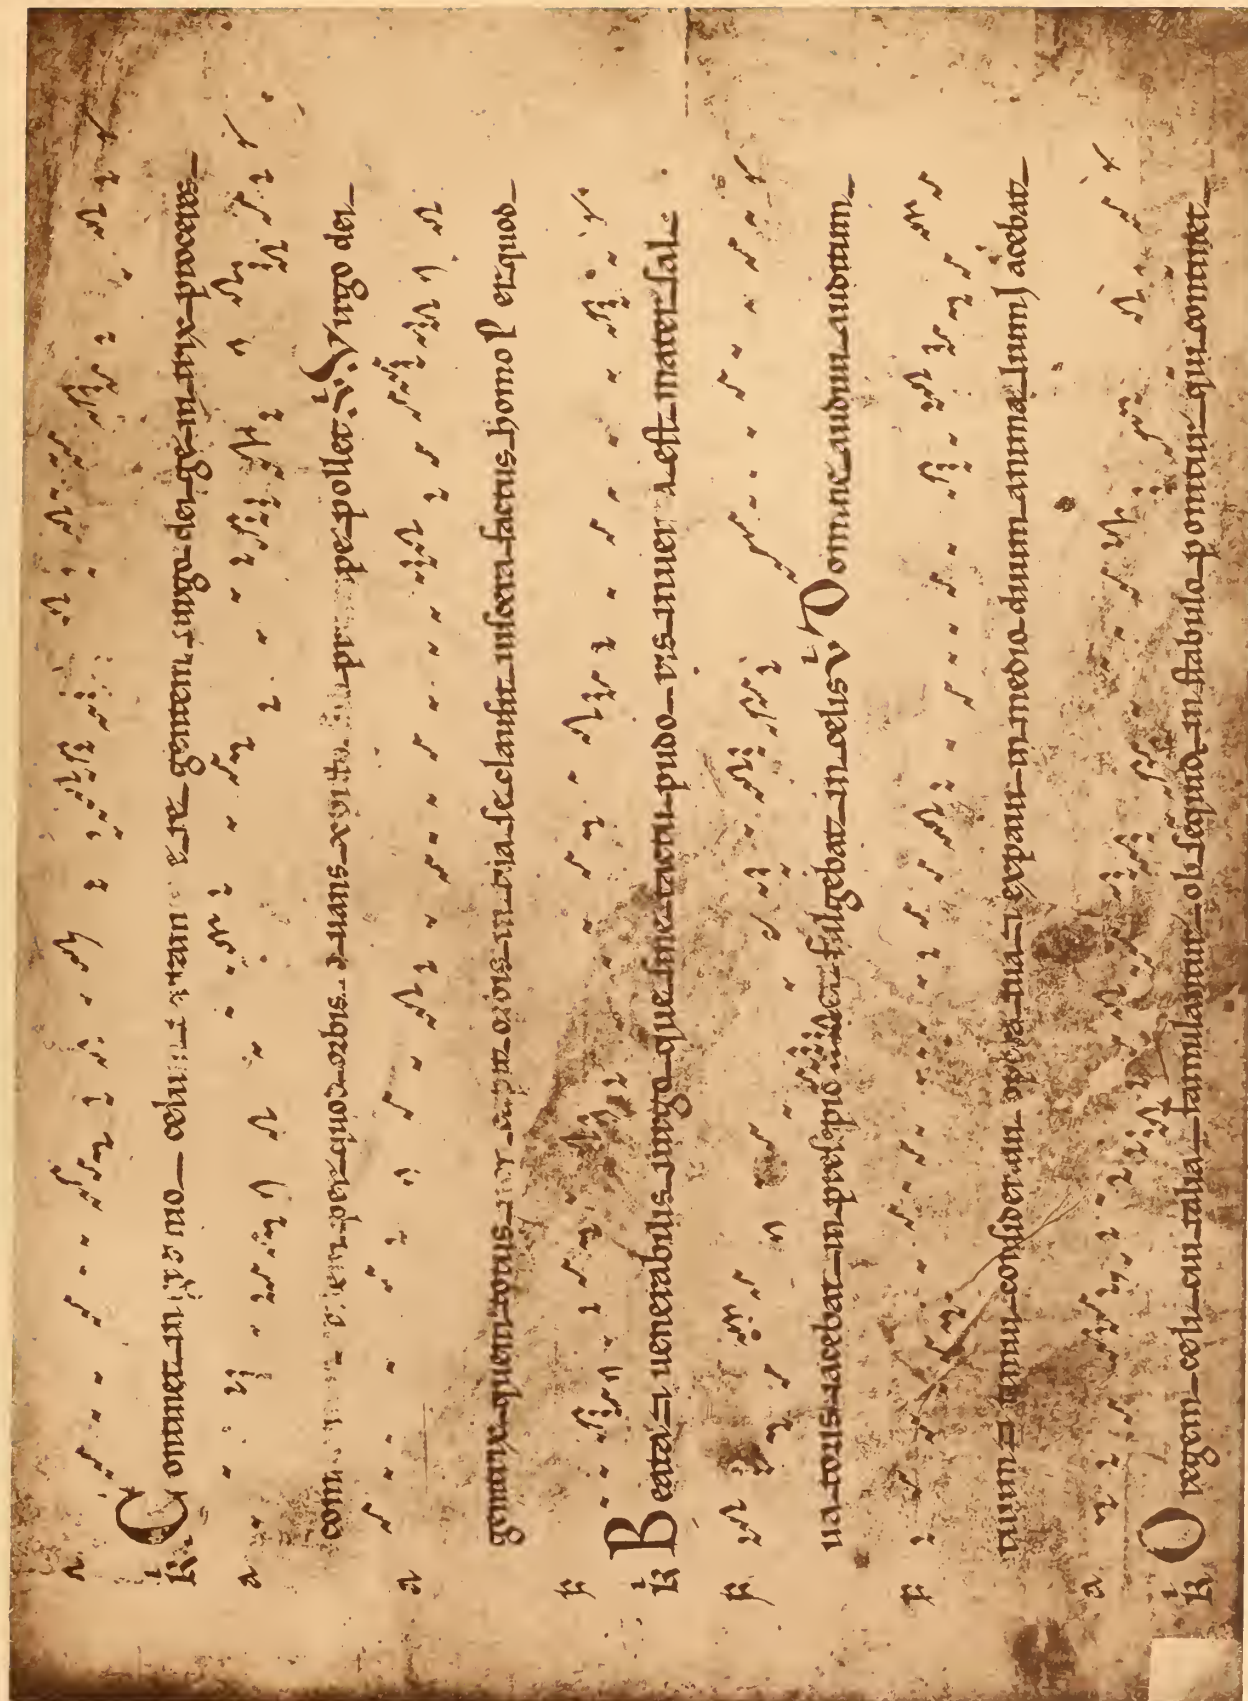 R Continet in gremio celum terram que regentem uirgo dei genitrix proceres
per quod orbis ouans prepollet V Virgo dei
genitrix quem totus non capit orbis in tua se clausit uiscera factus homo P er quod
R Beata et uenerabilis uirgo que sine tactu pudoris inuenta est mater sal
ua totus iacebat in presepio et fulgebat in celis V Domine audiui auditum
tuum et timui consideraui opera tua et expaui in medio duum animalium I acebat
R O regem celi cui talia famulantur obsequia in stabulo ponitur qui continet